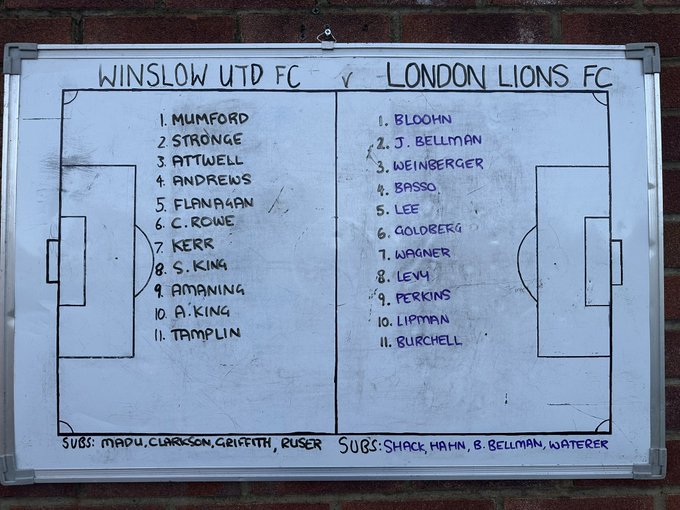 WINSLOW UTD FC v LONDON LIONS FC
1. MUMFORD
2. STRONGE
3. ATTWELL
4. ANDREWS
5. FLANAGAN
6. C. ROWE
7. KERR
8. S. KING
9. AMANING
10. A. KING
11. TAMPLIN
SUBS: MADU, CLARKSON, GRIFFITH, RUSER
1. BLOOHN
2. J. BELLMAN
3. WEINBERGER
4. BASSO
5. LEE
6. GOLDBERG
7. WAGNER
8. LEVY
9. PERKINS
10. LIPMAN
11. BURCHELL
SUBS: SHACK, HAHN, B. BELLMAN, WATERER